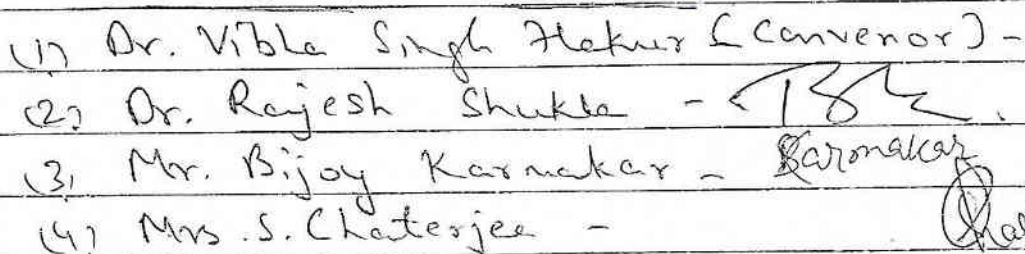 (1) Dr. Vibha Singh Thakur [Convenor] -
(2) Dr. Rajesh Shukla -
(3) Mr. Bijoy Karmakar - Karmakar
(4) Mrs. S. Chaterjee -